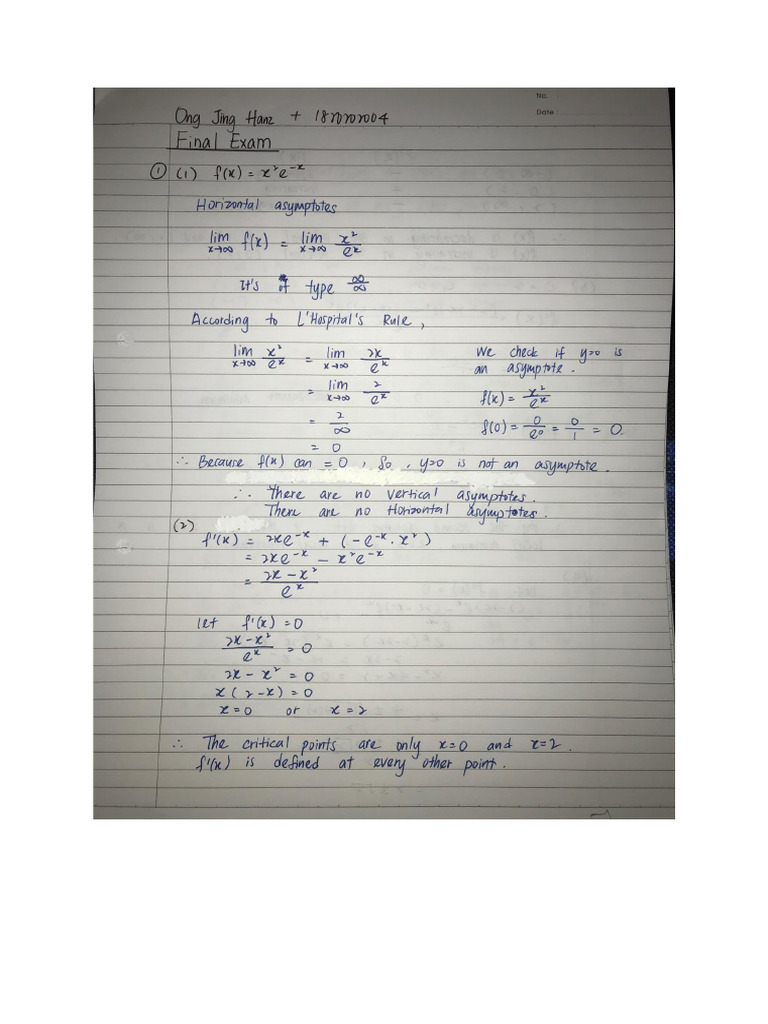 No. :
Date :
Ong Jing Hanz + 1820202004
Final Exam
① (1) f(x) = x²e⁻ˣ
Horizontal asymptotes
lim x→∞ f(x) = lim x→∞ x²/eˣ
It's of type ∞/∞
According to L'Hospital's Rule,
lim x→∞ x²/eˣ = lim x→∞ 2x/eˣ
= lim x→∞ 2/eˣ
= 2/∞
= 0
We check if y=0 is
an asymptote.
f(x) = x²/eˣ
f(0) = 0/e⁰ = 0/1 = 0
∴ Because f(x) can = 0, so, y=0 is not an asymptote.
∴ There are no vertical asymptotes.
There are no Horizontal asymptotes.
(2)
f'(x) = 2xe⁻ˣ + (-e⁻ˣ · x²)
= 2xe⁻ˣ - x²e⁻ˣ
= (2x - x²)/eˣ
let f'(x) = 0
(2x - x²)/eˣ = 0
2x - x² = 0
x(2-x) = 0
x=0 or x=2
∴ The critical points are only x=0 and x=2.
f'(x) is defined at every other point.